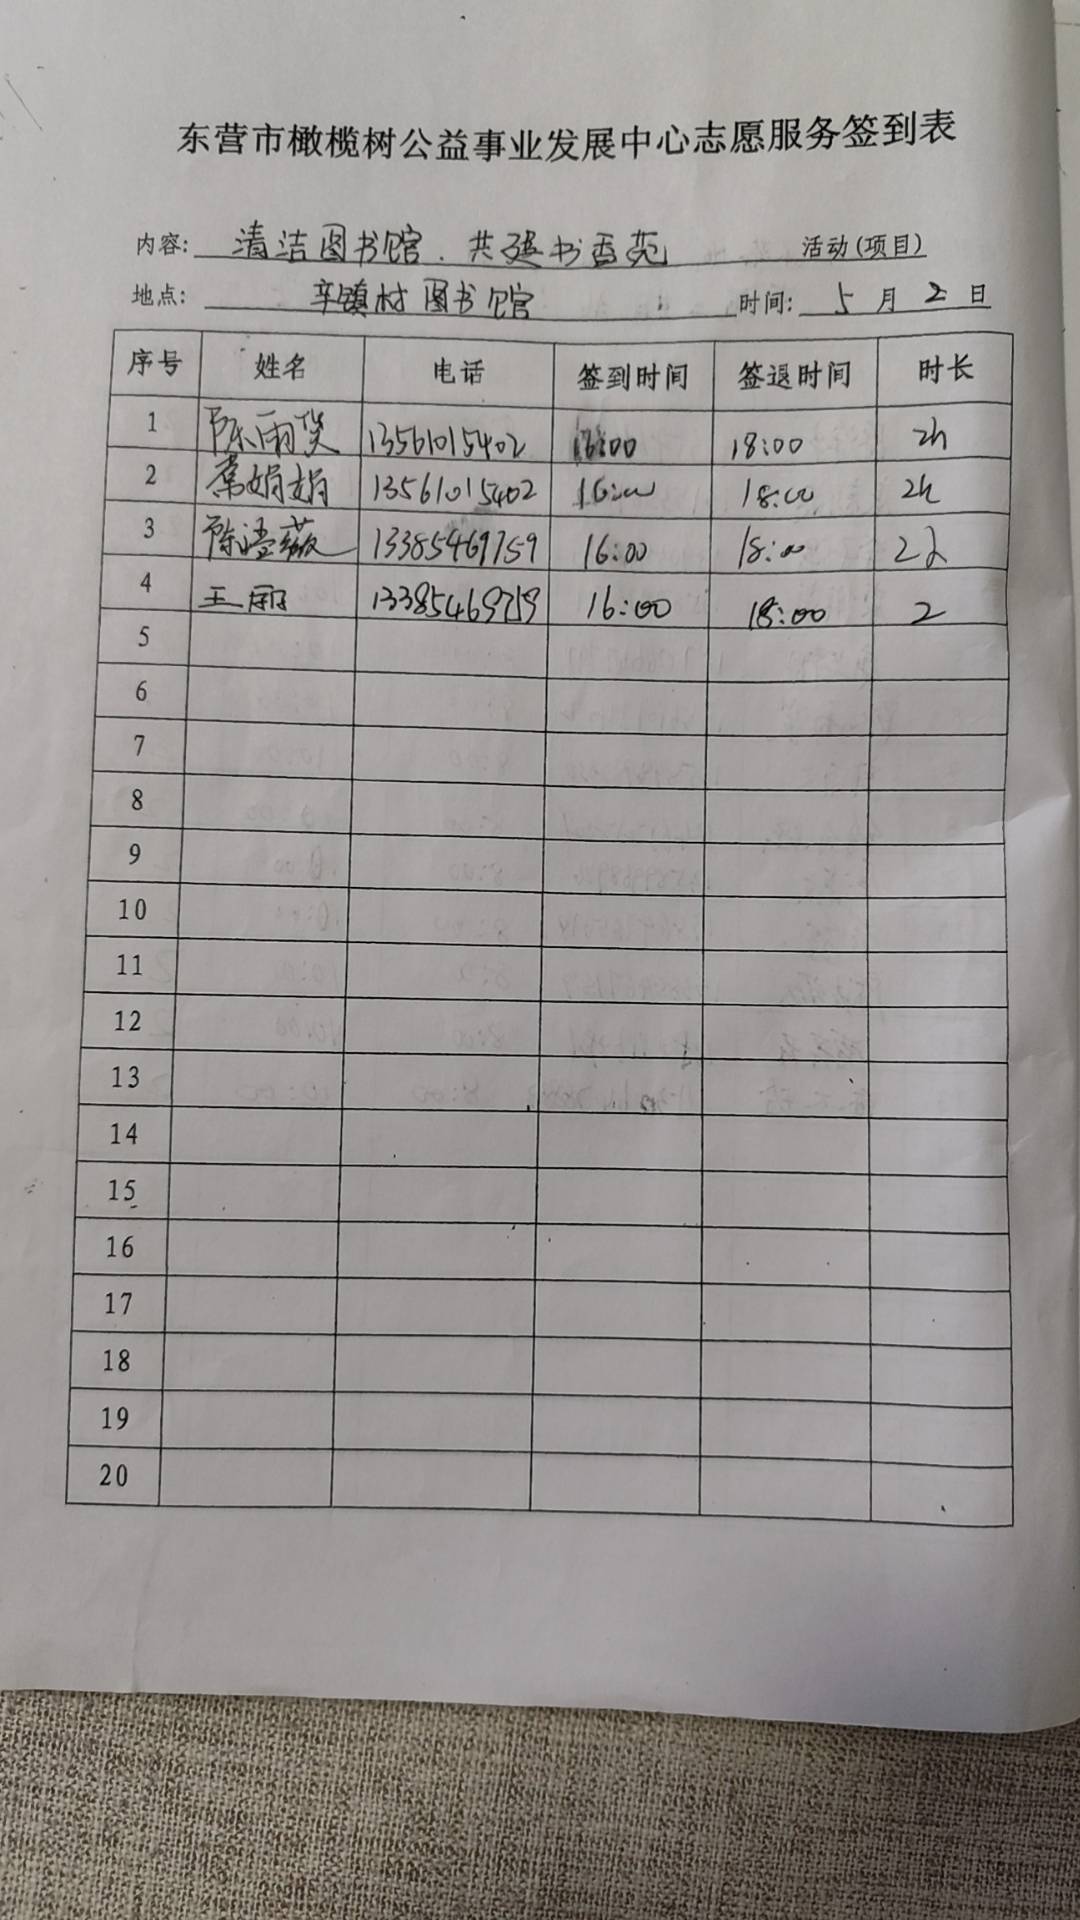 东营市橄榄树公益事业发展中心志愿服务签到表
内容: 清洁图书馆.共建书香苑 活动(项目)
地点: 辛镇村图书馆 时间: 5 月 2 日
序号 姓名 电话 签到时间 签退时间 时长
1 陈雨 13561015402 16:00 18:00 2h
2 娟娟 13561015402 16:00 18:00 2h
3 陈 薇 13385469759 16:00 18:00 2
4 王丽 13385469759 16:00 18:00 2
5
6
7
8
9
10
11
12
13
14
15
16
17
18
19
20